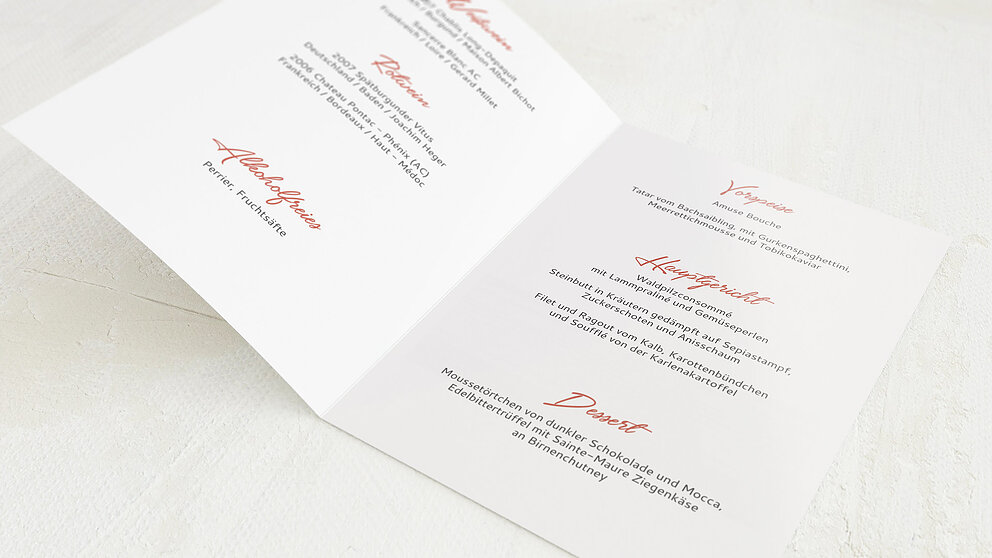 Weißwein
Chablis Long-Depaquit
/ Burgund / Maison Albert Bichot
Sancerre Blanc AC
Frankreich / Loire / Gerard Millet
Rotwein
2007 Spätburgunder Vitus
Deutschland / Baden / Joachim Heger
2006 Chateau Pontac – Phénix (AC)
Frankreich / Bordeaux / Haut – Médoc
Alkoholfreies
Perrier, Fruchtsäfte
Vorspeise
Amuse Bouche
Tatar vom Bachsaibling, mit Gurkenspaghettini,
Meerrettichmousse und Tobikokaviar
Hauptgericht
Waldpilzconsommé
mit Lammpraliné und Gemüseperlen
Steinbutt in Kräutern gedämpft auf Sepiastampf,
Zuckerschoten und Anisschaum
Filet und Ragout vom Kalb, Karottenbündchen
und Soufflé von der Karlenakartoffel
Dessert
Moussetörtchen von dunkler Schokolade und Mocca,
Edelbittertrüffel mit Sainte-Maure Ziegenkäse
an Birnenchutney